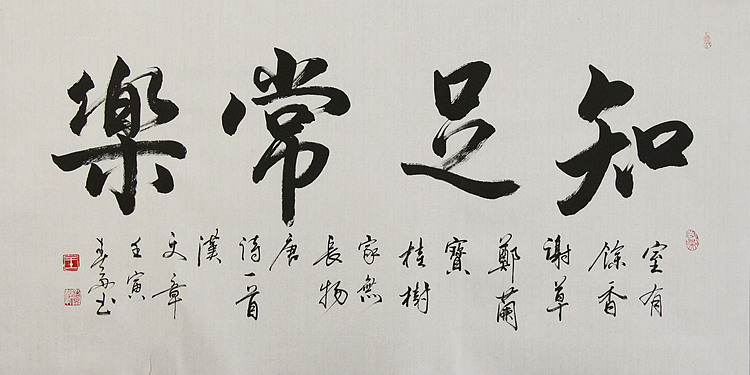 知足常樂
室有
餘香
謝草
鄭蘭
寶
桂樹
家無
長物
唐
詩一首
漢
文章
壬寅
書